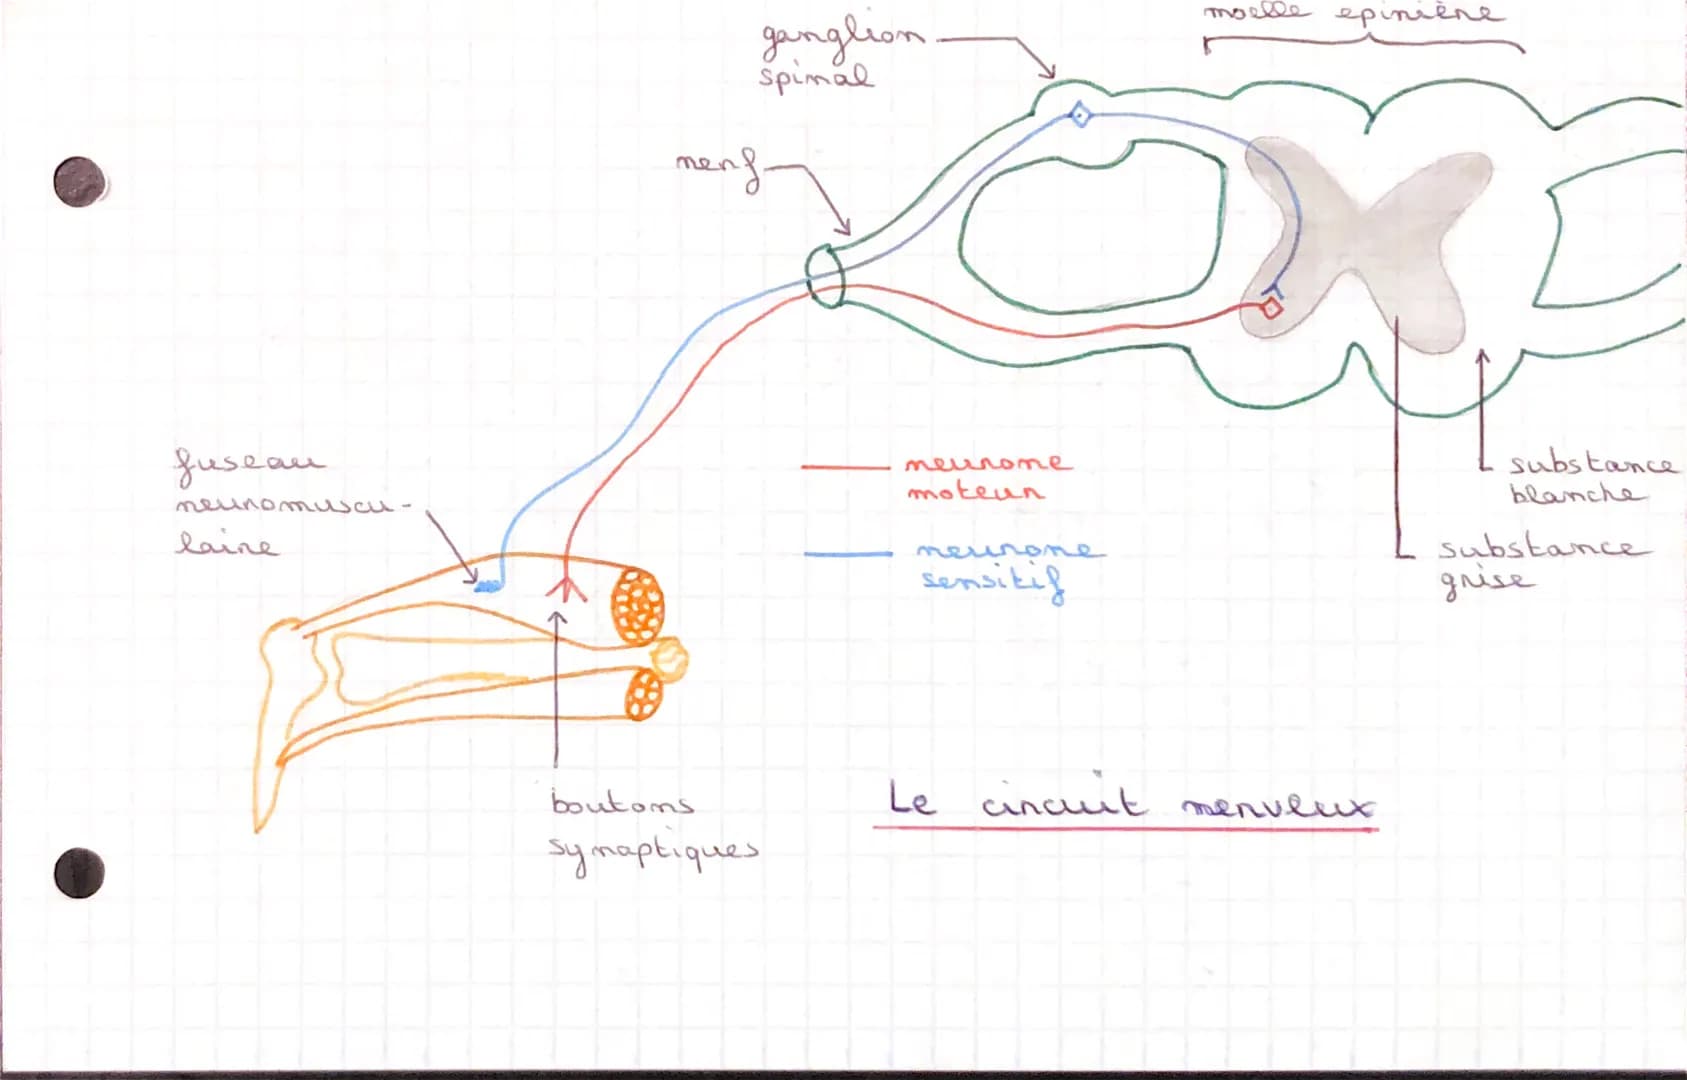 moelle epinière
ganglion
spinal
nerf
fuseau
neuromuscu-
laire
neurone
moteur
neurone
sensitif
substance
blanche
substance
grise
boutons
synaptiques
Le circuit nerveux